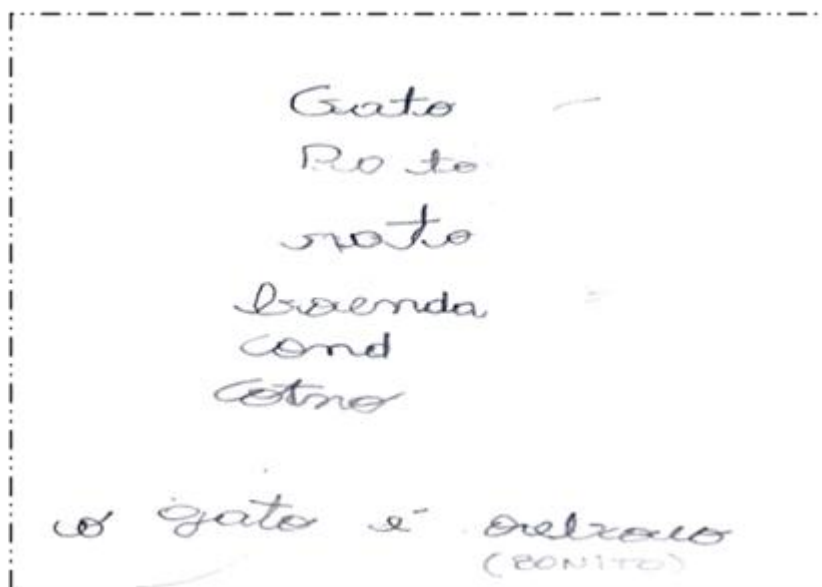 Gato
Rato
rato
baenda
cond
Cotno
o gato é
(BONITO)